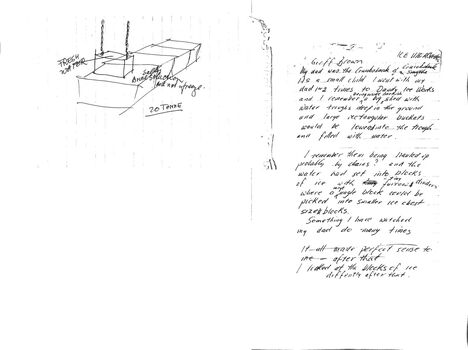 FRESH
WATER
SALTY
does not freeze
20 TONNE
ICE
Geoff Brown
My dad was the
As a small child I went with my
dad 1-2 times to Dandy Ice Works
and I remember a big shed with
water troughs deep in the ground
and large rectangular buckets
would be lowered into the trough
and filled with water.
I remember them being hauled up
probably by chains? and the
water had set into blocks
of ice with furrows
where a single block could be
picked into smaller ice chest
sized blocks.
Something I have watched
my dad do many times
It all made perfect sense to
me - after that
I looked at the blocks of ice
differently after that.